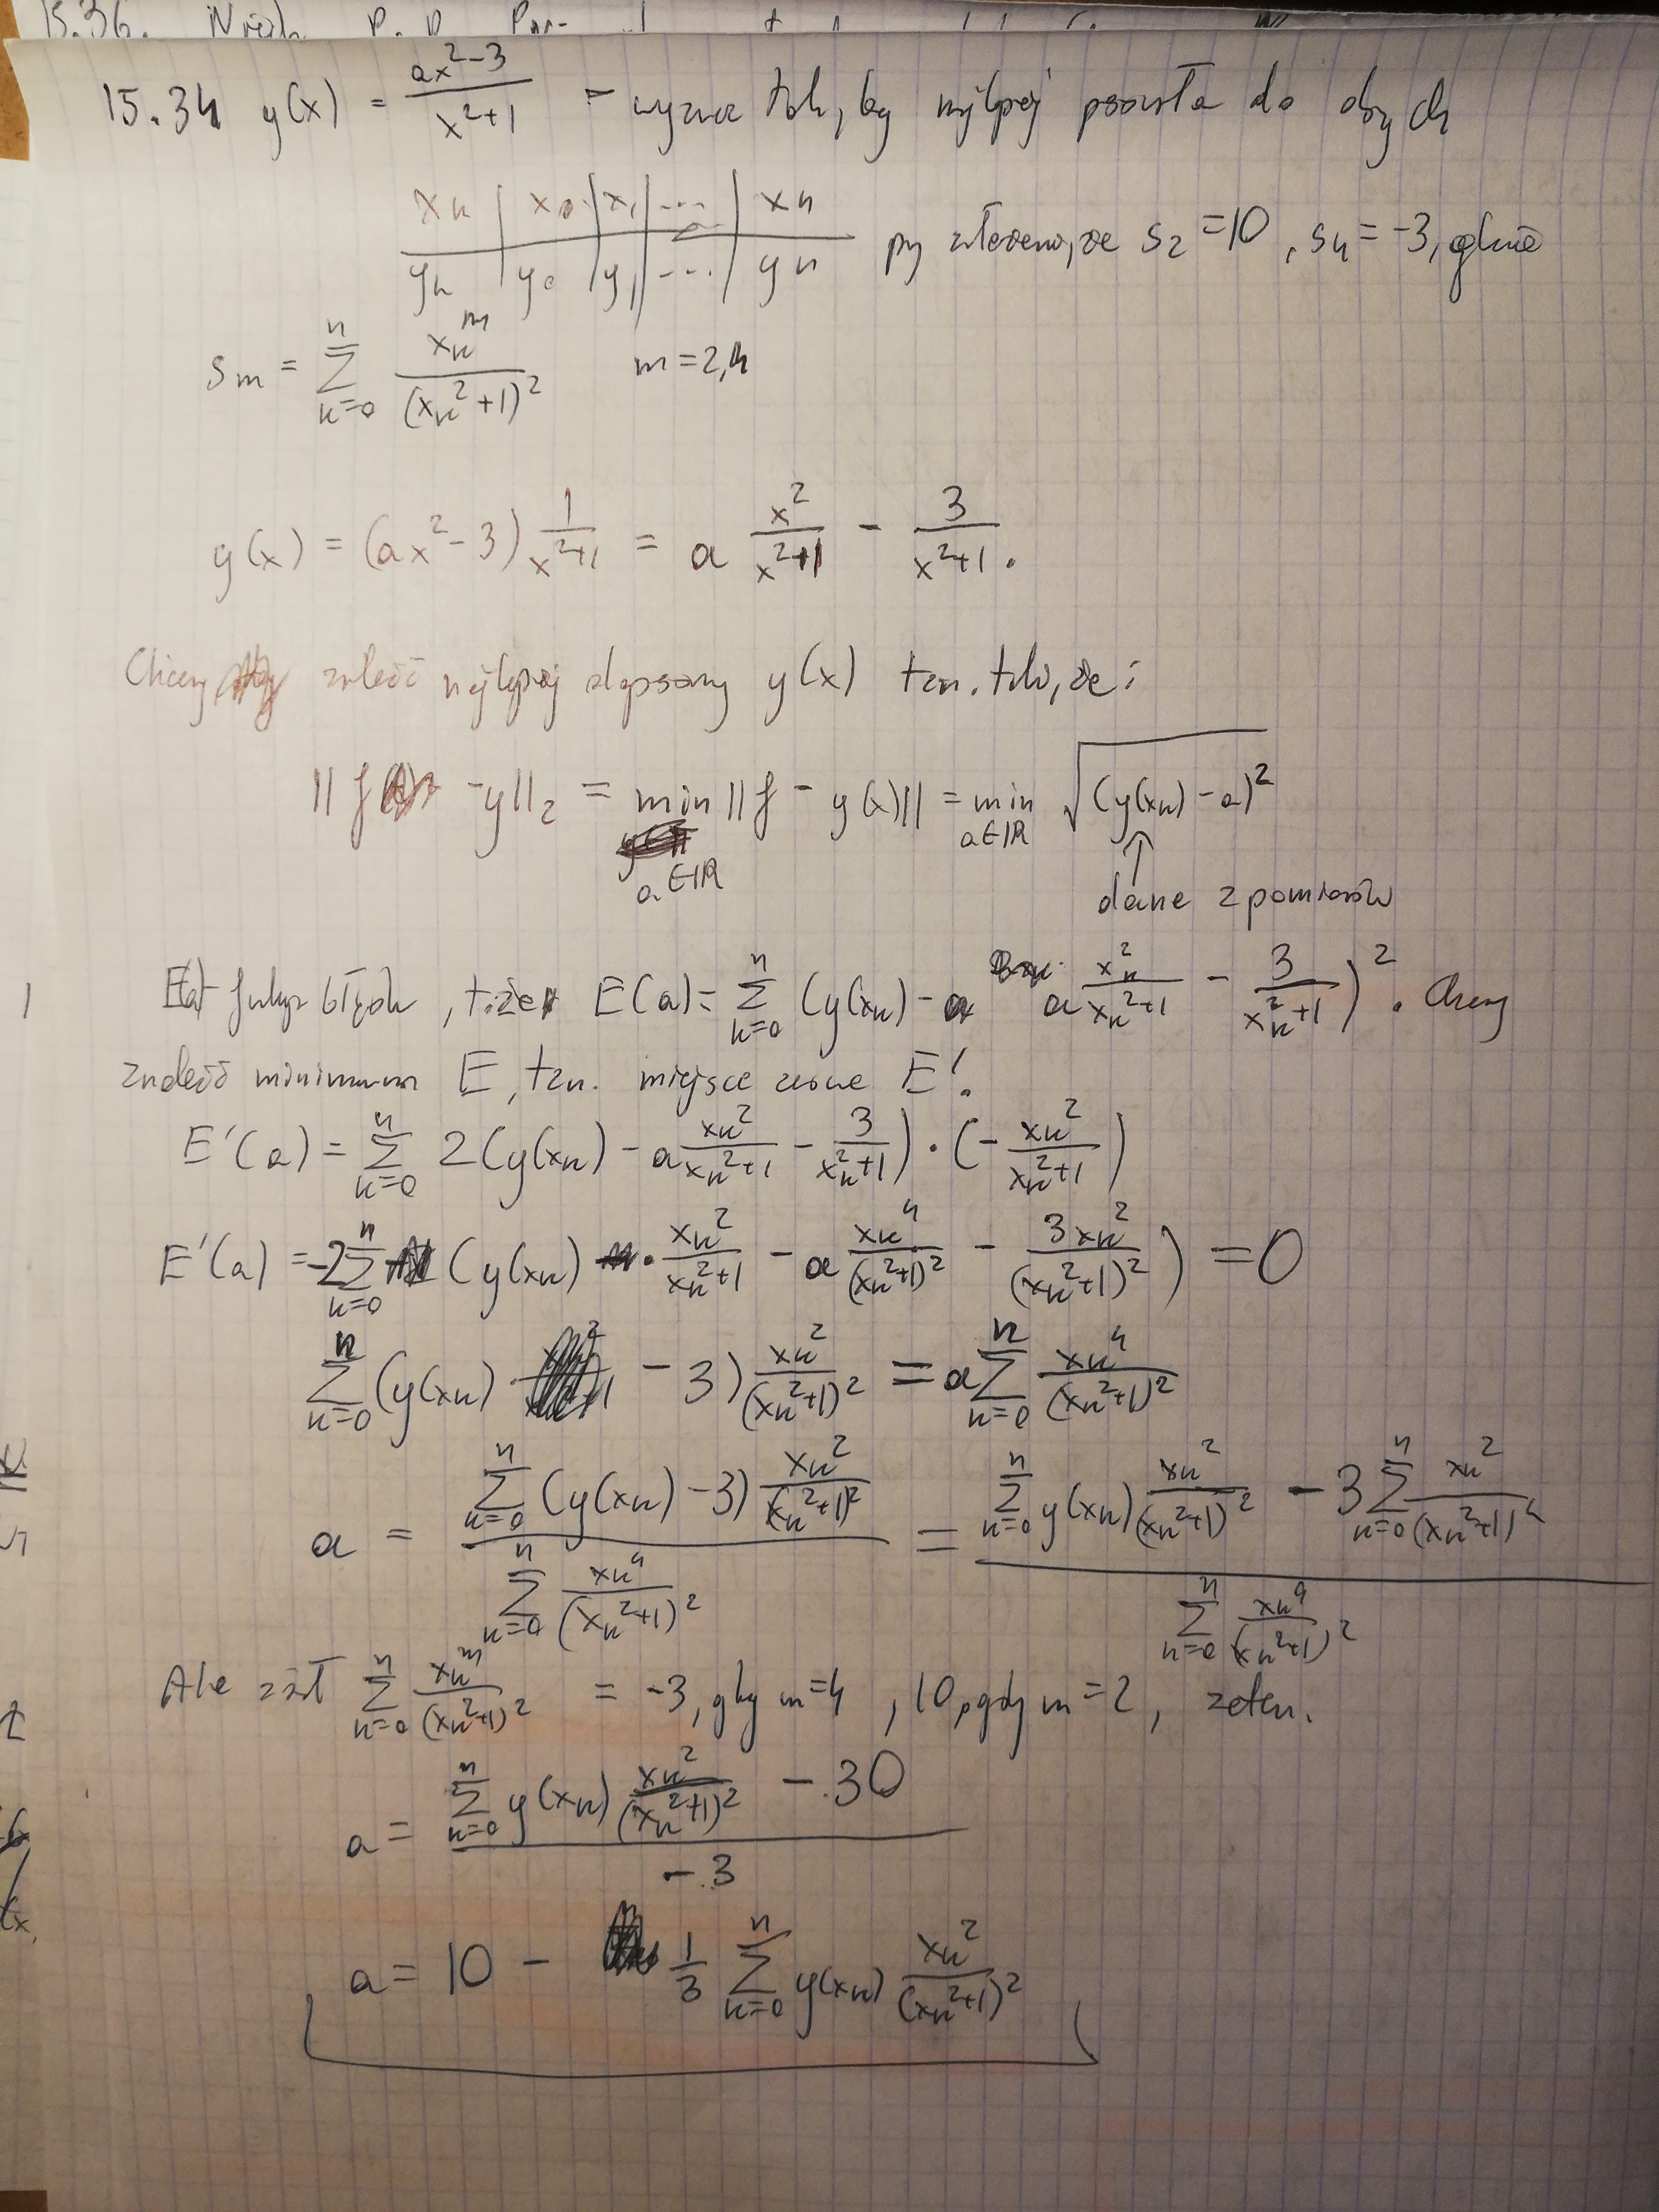 15.36.
15.34 y(x) = \frac{ax^2-3}{x^2+1} - wyznacz tak, by najlepiej pasowała do danych
x_k | x_0 | x_1 | ... | x_n
y_k | y_0 | y_1 | ... | y_n przy założeniu, że s_2 = 10, s_4 = -3, gdzie
s_m = \sum_{k=0}^{n} \frac{x_k^m}{(x_k^2+1)^2} m = 2,4
y(x) = (ax^2-3) \frac{1}{x^2+1} = a \frac{x^2}{x^2+1} - \frac{3}{x^2+1}.
Chcemy znaleźć najlepiej dopasowany y(x) tzn. taki, że:
||f - y||_2 = \min_{a∈ℝ} ||f - y(x)|| = \min_{a∈ℝ} \sqrt{(y(x_k) - a)^2}
↑
dane z pomiarów
funkcja błędu, E(a) = \sum_{k=0}^{n} (y(x_k) - a \frac{x_k^2}{x_k^2+1} - \frac{3}{x_k^2+1})^2. Chcemy
znaleźć minimum E, tzn. miejsce zerowe E'.
E'(a) = \sum_{k=0}^{n} 2(y(x_k) - a \frac{x_k^2}{x_k^2+1} - \frac{3}{x_k^2+1}) · (-\frac{x_k^2}{x_k^2+1})
E'(a) = -2\sum_{k=0}^{n} (y(x_k) · \frac{x_k^2}{x_k^2+1} - a \frac{x_k^4}{(x_k^2+1)^2} - \frac{3x_k^2}{(x_k^2+1)^2}) = 0
\sum_{k=0}^{n} (y(x_k) - 3) \frac{x_k^2}{(x_k^2+1)^2} = a \sum_{k=0}^{n} \frac{x_k^4}{(x_k^2+1)^2}
a = \frac{\sum_{k=0}^{n} (y(x_k) - 3) \frac{x_k^2}{(x_k^2+1)^2}}{\sum_{k=0}^{n} \frac{x_k^4}{(x_k^2+1)^2}} = \frac{\sum_{k=0}^{n} y(x_k) \frac{x_k^2}{(x_k^2+1)^2} - 3\sum_{k=0}^{n} \frac{x_k^2}{(x_k^2+1)^2}}{\sum_{k=0}^{n} \frac{x_k^4}{(x_k^2+1)^2}}
Ale z zał \sum_{k=0}^{n} \frac{x_k^m}{(x_k^2+1)^2} = -3, gdy m = 4, 10, gdy m = 2, zatem.
a = \frac{\sum_{k=0}^{n} y(x_k) \frac{x_k^2}{(x_k^2+1)^2} - 30}{-3}
a = 10 - \frac{1}{3} \sum_{k=0}^{n} y(x_k) \frac{x_k^2}{(x_k^2+1)^2}